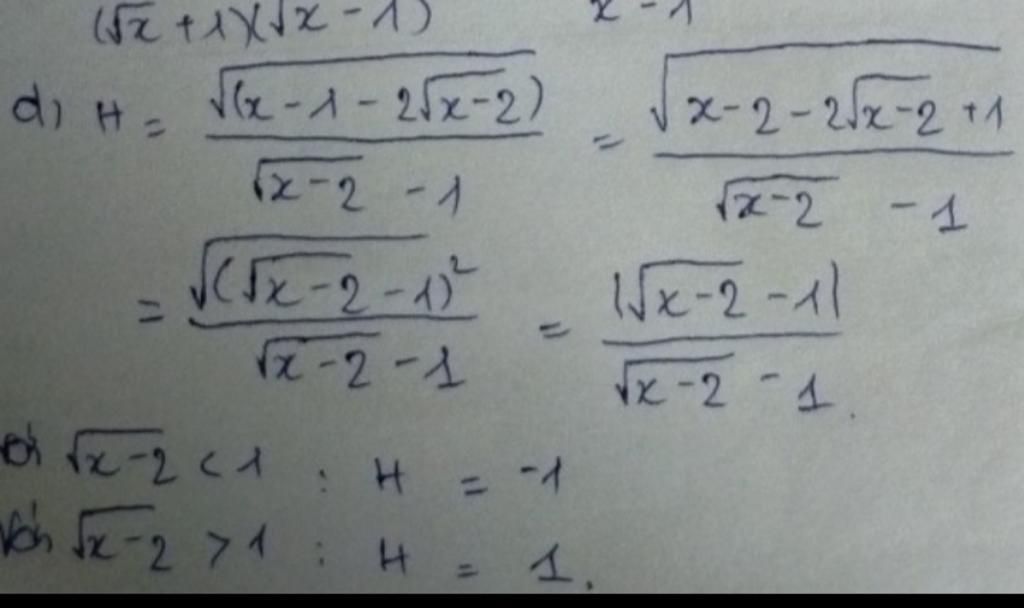 (√x + 1)(√x - 1) x - 1
d) H = √(x - 1 - 2√(x-2)) / (√(x-2) - 1) = √(x-2 - 2√(x-2) + 1) / (√(x-2) - 1)
= √(√(x-2) - 1)² / (√(x-2) - 1) = |√(x-2) - 1| / (√(x-2) - 1).
√(x-2) < 1 : H = -1
Với √(x-2) > 1 : H = 1.